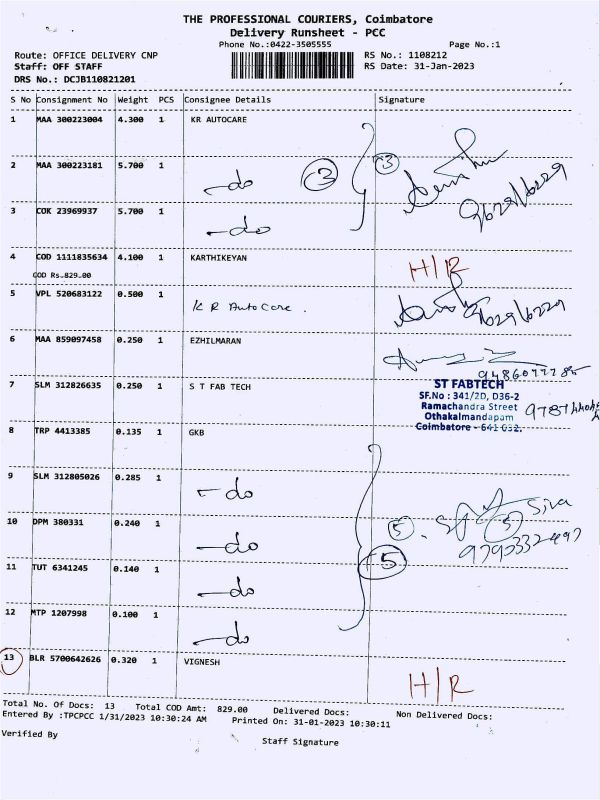 THE PROFESSIONAL COURIERS, Coimbatore
Delivery Runsheet - PCC
Phone No.:0422-3505555 Page No.:1
Route: OFFICE DELIVERY CNP RS No.: 1108212
Staff: OFF STAFF RS Date: 31-Jan-2023
DRS No.: DCJB110821201
S No Consignment No Weight PCS Consignee Details Signature
1 MAA 300223004 4.300 1 KR AUTOCARE
2 MAA 300223181 5.700 1 -do 3 3
9629116229
3 COK 23969937 5.700 1 -do
4 COD 1111835634 4.100 1 KARTHIKEYAN H/R
COD Rs.829.00
5 VPL 520683122 0.500 1 K R Auto Care. 9629116229
6 MAA 859097458 0.250 1 EZHILMARAN
7 SLM 312826635 0.250 1 S T FAB TECH
ST FABTECH
SF.No : 341/2D, D36-2
Ramachandra Street
Othakalmandapam
Coimbatore - 641 032.
8 TRP 4413385 0.135 1 GKB
9 SLM 312805026 0.285 1 -do
10 DPM 380331 0.240 1 -do 5 5 Siva
11 TUT 6341245 0.140 1 -do 5
12 MTP 1207998 0.100 1 -do
13 BLR 5700642626 0.320 1 VIGNESH H/R
Total No. Of Docs: 13 Total COD Amt: 829.00 Delivered Docs: Non Delivered Docs:
Entered By :TPCPCC 1/31/2023 10:30:24 AM Printed On: 31-01-2023 10:30:11
Verified By Staff Signature